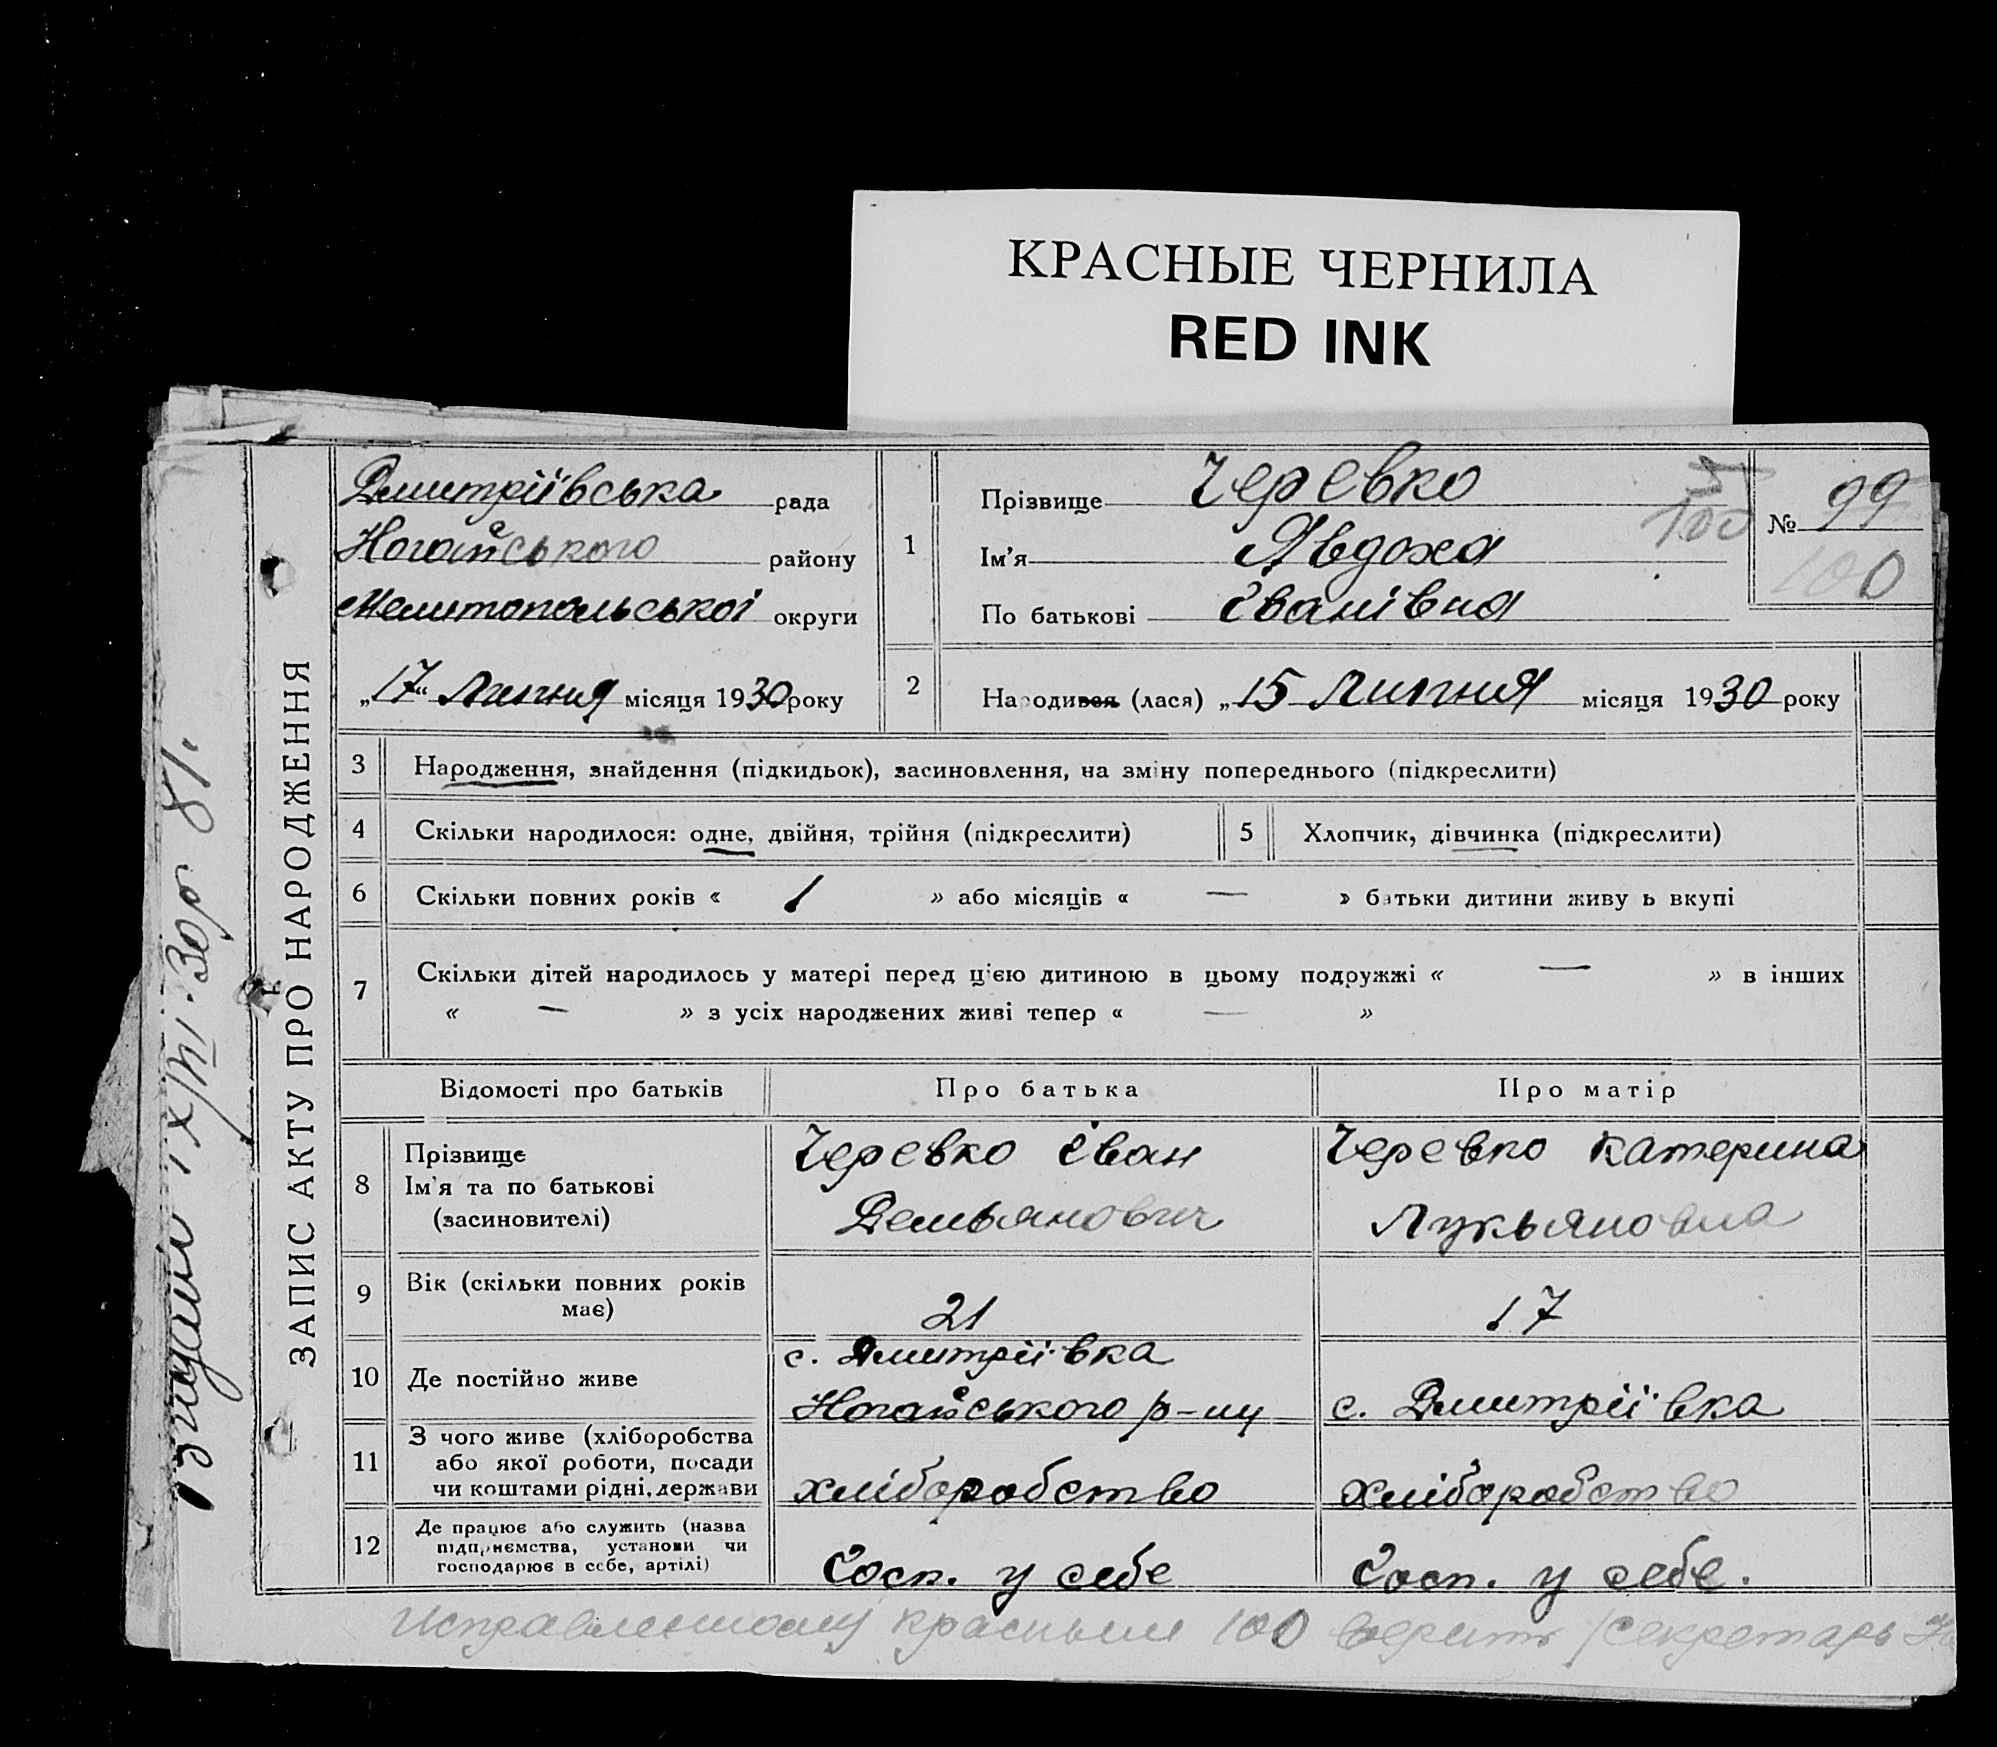 КРАСНЫЕ ЧЕРНИЛА
RED INK
ЗАПИС АКТУ ПРО НАРОДЖЕННЯ
Дмитріївська рада
Ногайського району
Мелитопольської округи
„17“ Липня місяця 1930 року
1
Прізвище Черевко
Ім'я Явдоха
По батькові Іванівна
5
100
№ 99
100
2 Народився (лася) „15 Липня місяця 1930 року
3 Народження, знайдення (підкидьок), засиновлення, на зміну попереднього (підкреслити)
4 Скільки народилося: одне, двійня, трійня (підкреслити) 5 Хлопчик, дівчинка (підкреслити)
6 Скільки повних років « 1 » або місяців « — » батьки дитини живу ь вкупі
7 Скільки дітей народилось у матері перед цією дитиною в цьому подружжі « — » в інших
« — » з усіх народжених живі тепер « — »
Відомості про батьків Про батька Про матір
8 Прізвище
Ім'я та по батькові
(засиновителі)
Черевко Іван
Демьянович
Черевко Катерина
Лукьяновна
9 Вік (скільки повних років
має)
21
17
10 Де постійно живе
с. Дмитріївка
Ногайського р-ну
с. Дмитріївка
11 З чого живе (хліборобства
або якої роботи, посади
чи коштами рідні, держави
хліборобство
хліборобство
12 Де працює або служить (назва
підприємства, установи чи
господарює в себе, артілі)
Госп. у себе
Госп. у себе.
Исправленному красным 100 верить /секретарь